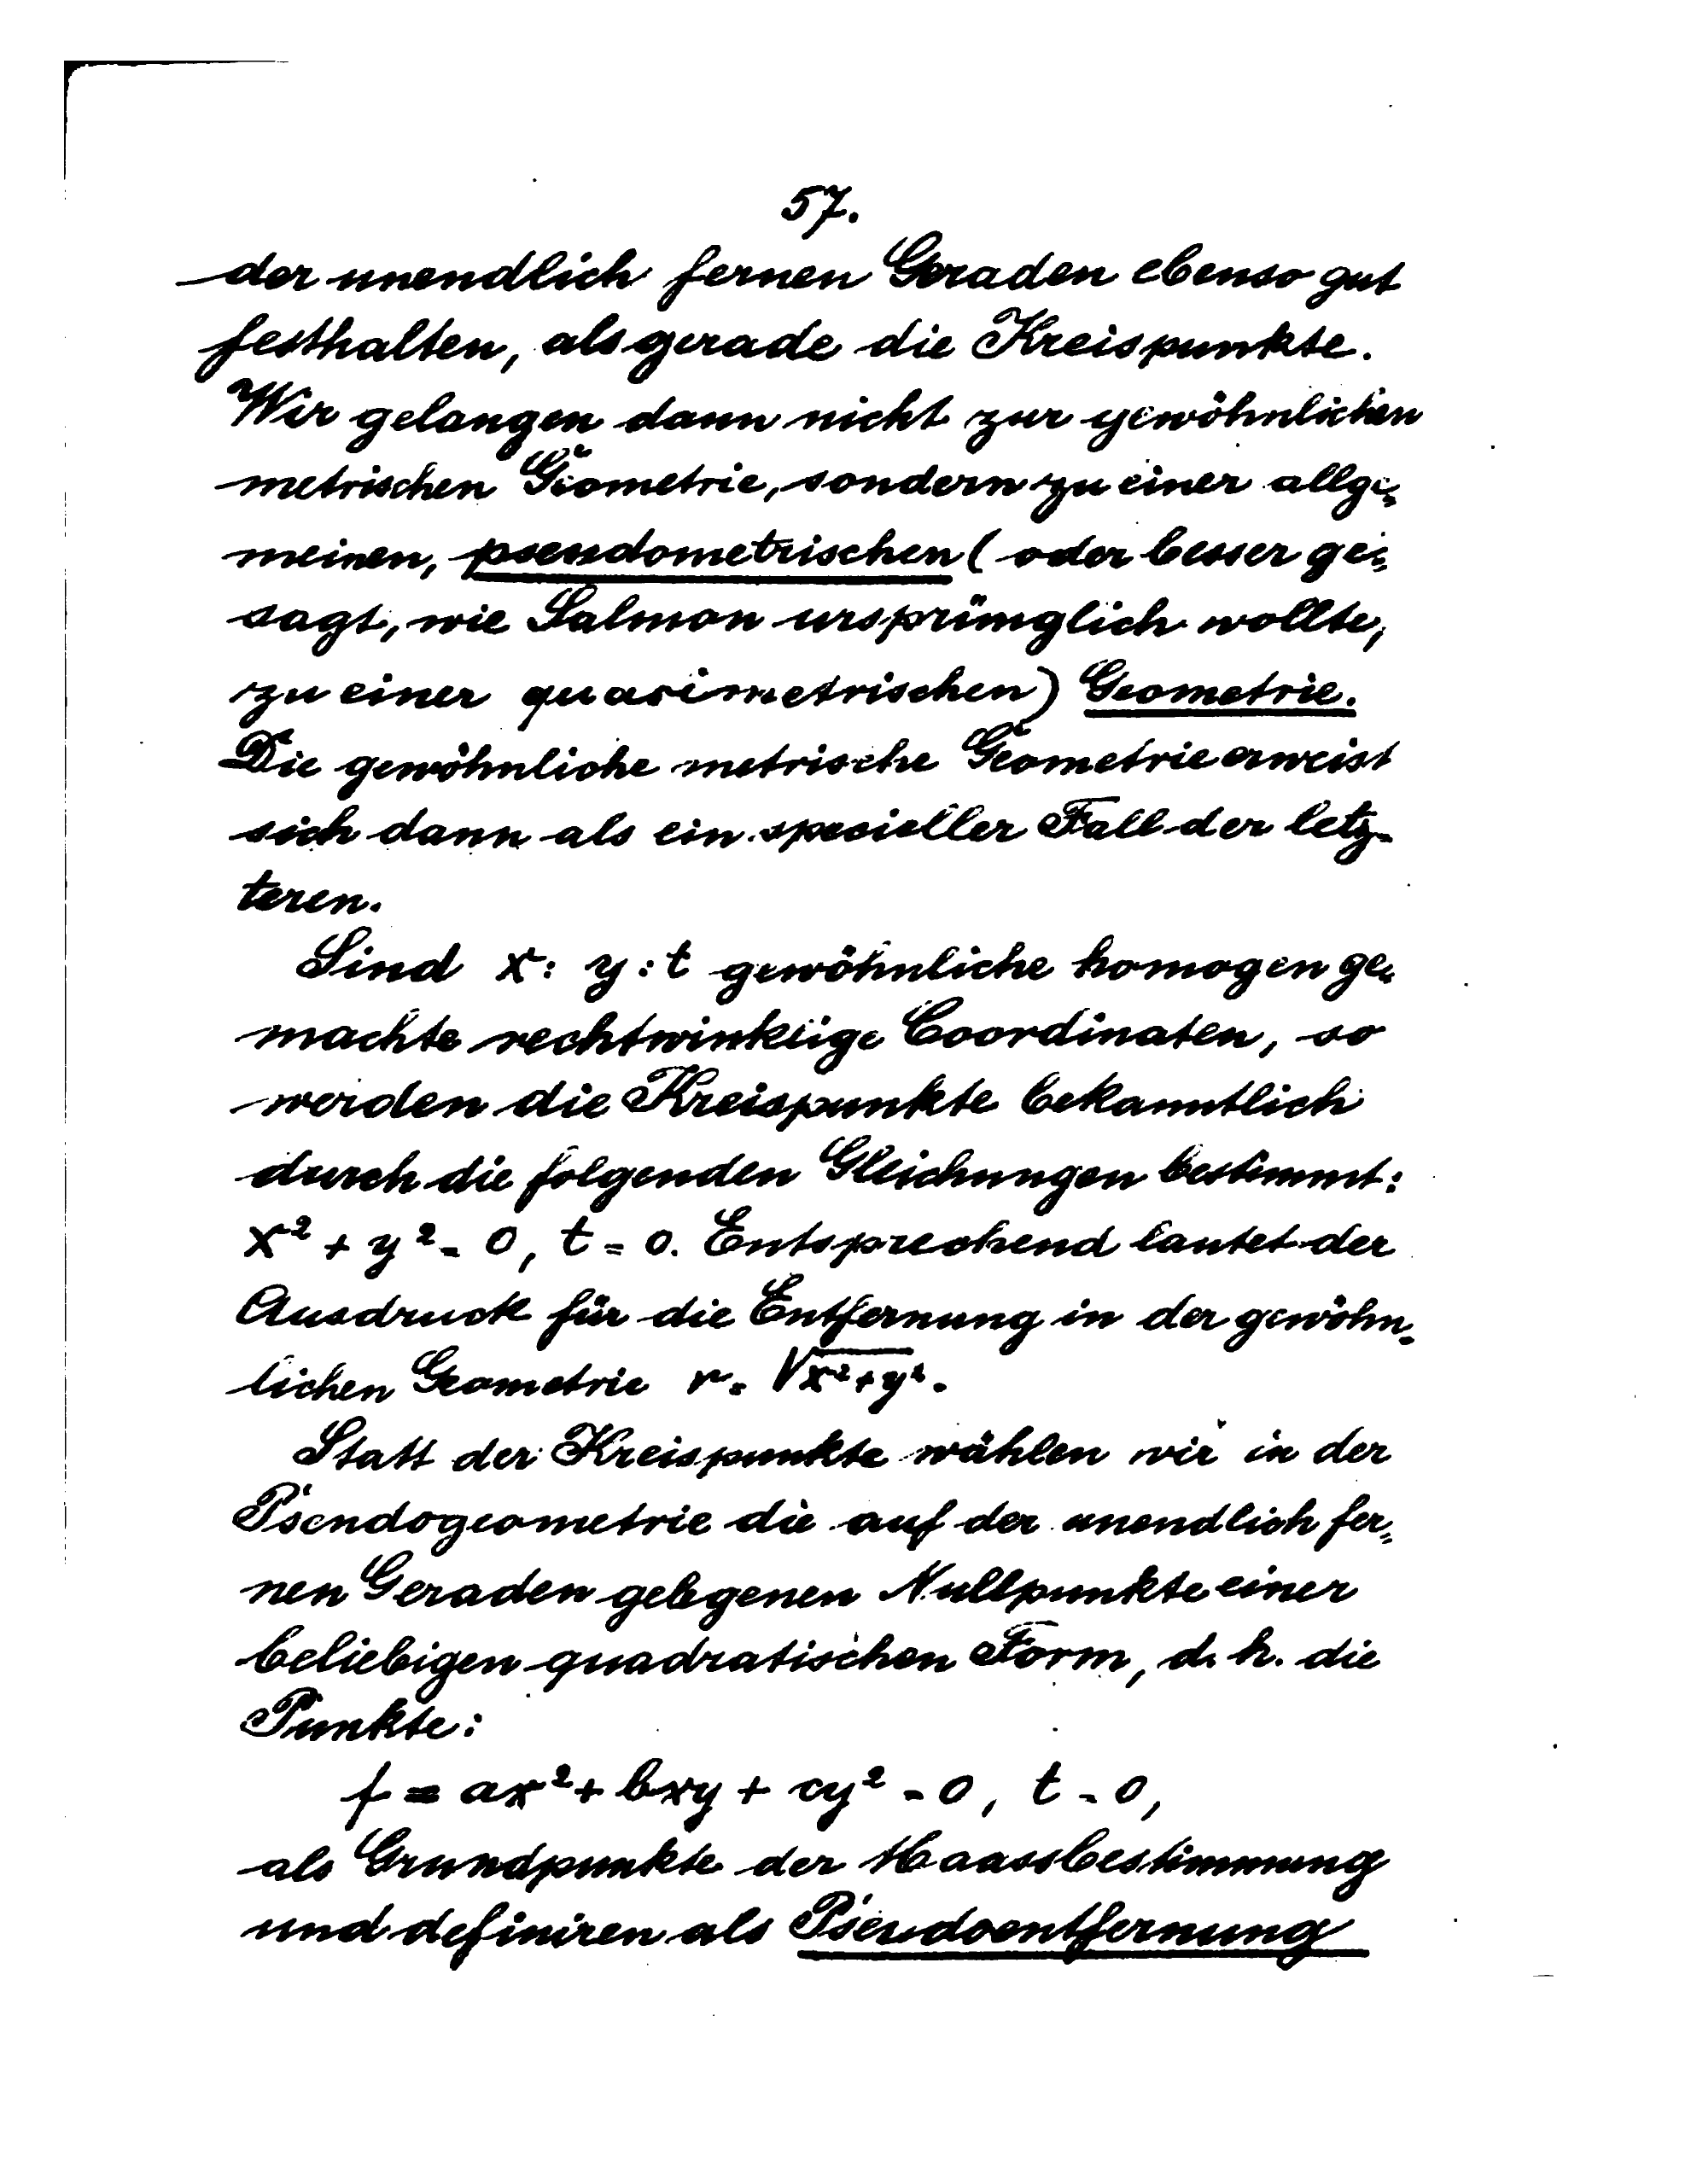 57.
der unendlich fernen Geraden ebenso gut
festhalten, als gerade die Kreispunkte.
Wir gelangen dann nicht zur gewöhnlichen
metrischen Geometrie, sondern zu einer allge-
meinen, pseudometrischen (oder besser ge-
sagt, wie Salmon ursprünglich wollte,
zu einer quasimetrischen) Geometrie.
Die gewöhnliche metrische Geometrie erweist
sich dann als ein specieller Fall der letz-
teren.
Sind x : y : t gewöhnliche homogen ge-
machte rechtwinklige Coordinaten, so
werden die Kreispunkte bekanntlich
durch die folgenden Gleichungen bestimmt:
x² + y² = 0, t = 0. Entsprechend lautet der
Ausdruck für die Entfernung in der gewöhn-
lichen Geometrie r = √x²+y².
Statt der Kreispunkte wählen wir in der
Pseudogeometrie die auf der unendlich fer-
nen Geraden gelegenen Nullpunkte einer
beliebigen quadratischen Form, d. h. die
Punkte:
f = ax² + bxy + cy² = 0, t = 0,
als Grundpunkte der Maassbestimmung
und definiren als Pseudoentfernung